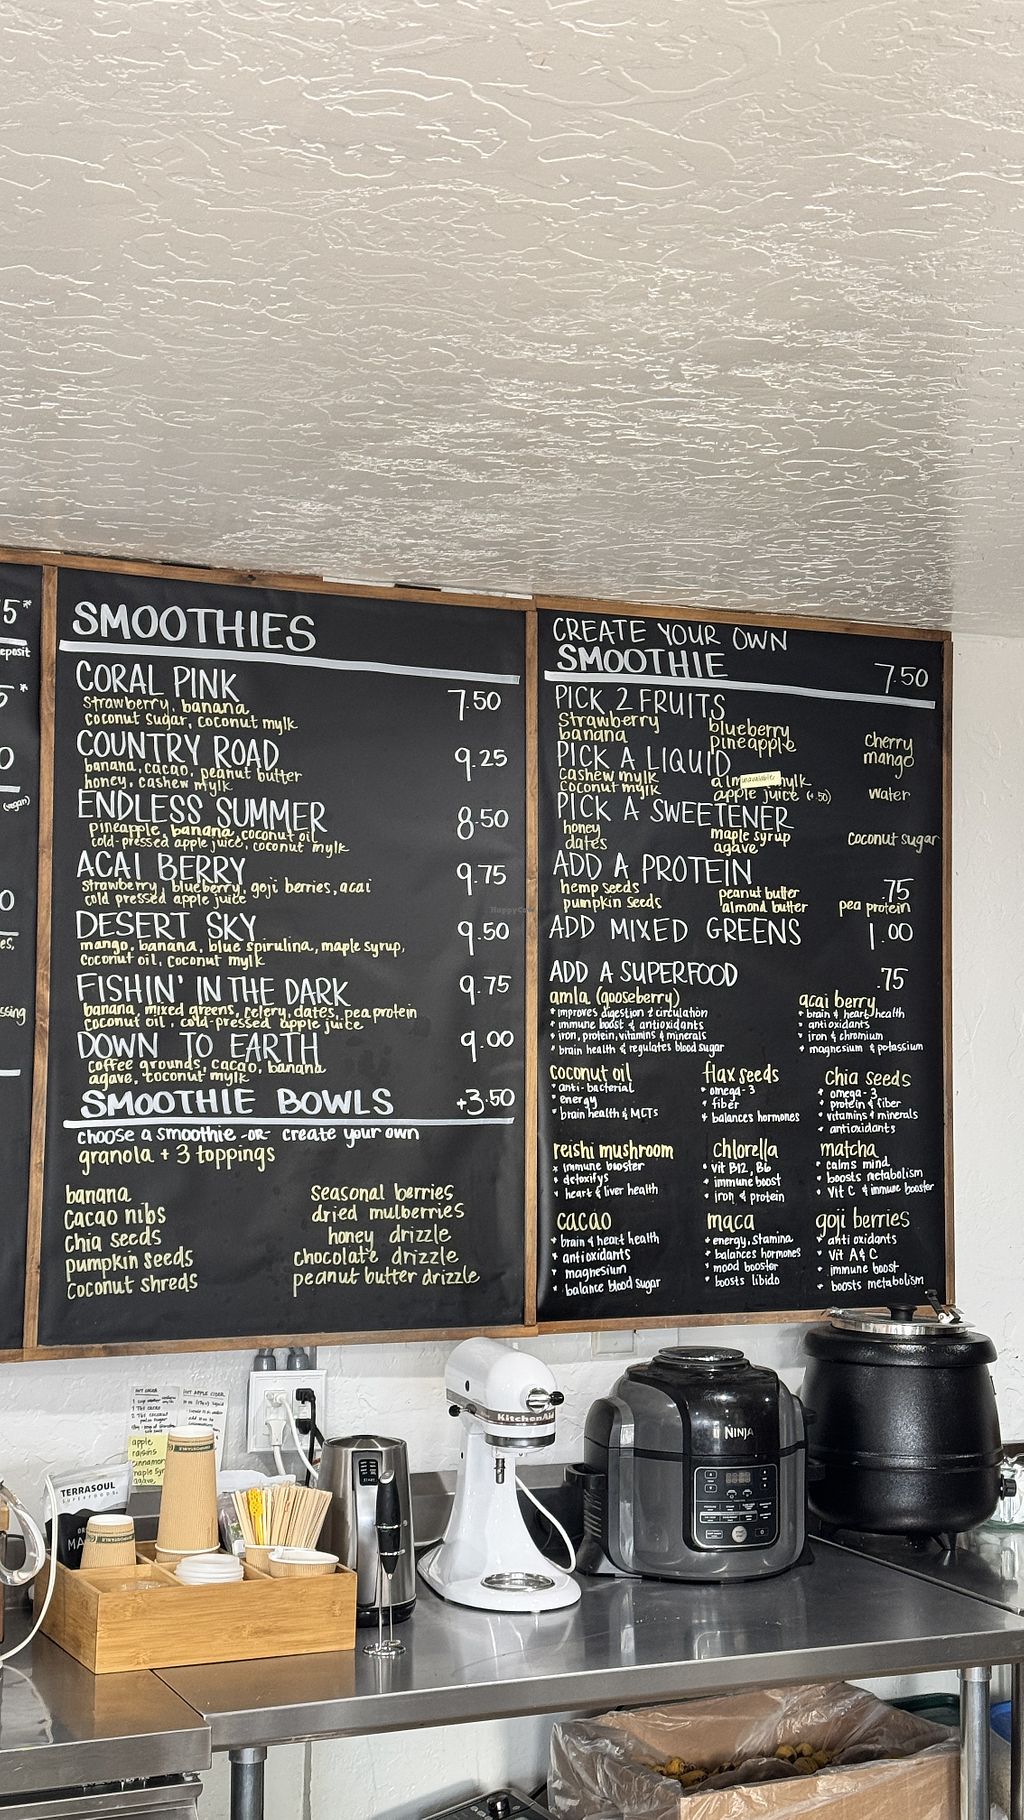 5*
eposit
5*
0
(vegan)
0
es,
ssing
SMOOTHIES
CORAL PINK 7.50
strawberry, banana
coconut sugar, coconut mylk
COUNTRY ROAD 9.25
banana, cacao, peanut butter
honey, cashew mylk
ENDLESS SUMMER 8.50
pineapple, banana, coconut oil
cold-pressed apple juice, coconut mylk
ACAI BERRY 9.75
strawberry, blueberry, goji berries, acai
cold pressed apple juice
DESERT SKY 9.50
mango, banana, blue spirulina, maple syrup,
coconut oil, coconut mylk
FISHIN' IN THE DARK 9.75
banana, mixed greens, celery, dates, pea protein
coconut oil, cold-pressed apple juice
DOWN TO EARTH 9.00
coffee grounds, cacao, banana
agave, coconut mylk
SMOOTHIE BOWLS +3.50
choose a smoothie -OR- create your own
granola + 3 toppings
banana seasonal berries
cacao nibs dried mulberries
chia seeds honey drizzle
pumpkin seeds chocolate drizzle
coconut shreds peanut butter drizzle
CREATE YOUR OWN
SMOOTHIE 7.50
PICK 2 FRUITS
strawberry blueberry cherry
banana pineapple mango
PICK A LIQUID
cashew mylk alm unavailable mylk water
coconut mylk apple juice (+.50)
PICK A SWEETENER
honey maple syrup coconut sugar
dates agave
ADD A PROTEIN .75
hemp seeds peanut butter pea protein
pumpkin seeds almond butter
ADD MIXED GREENS 1.00
ADD A SUPERFOOD .75
amla (gooseberry)
* improves digestion & circulation
* immune boost & antioxidants
* iron, protein, vitamins & minerals
* brain health & regulates blood sugar
acai berry
* brain & heart health
* antioxidants
* iron & chromium
* magnesium & potassium
coconut oil
* anti-bacterial
* energy
* brain health & MCTs
flax seeds
* omega-3
* fiber
* balances hormones
chia seeds
* omega-3
* protein & fiber
* vitamins & minerals
* antioxidants
reishi mushroom
* immune booster
* detoxifys
* heart & liver health
chlorella
* vit B12, B6
* immune boost
* iron & protein
matcha
* calms mind
* boosts metabolism
* Vit C & immune booster
cacao
* brain & heart health
* antioxidants
* magnesium
* balance blood sugar
maca
* energy, stamina
* balances hormones
* mood booster
* boosts libido
goji berries
* anti oxidants
* Vit A & C
* immune boost
* boosts metabolism
HOT CACAO
HOT APPLE CIDER
apple
raisins
cinnamon
maple syr
agave,
TERRASOUL
SUPERFOODS
MA
KitchenAid
NINJA
HappyCow